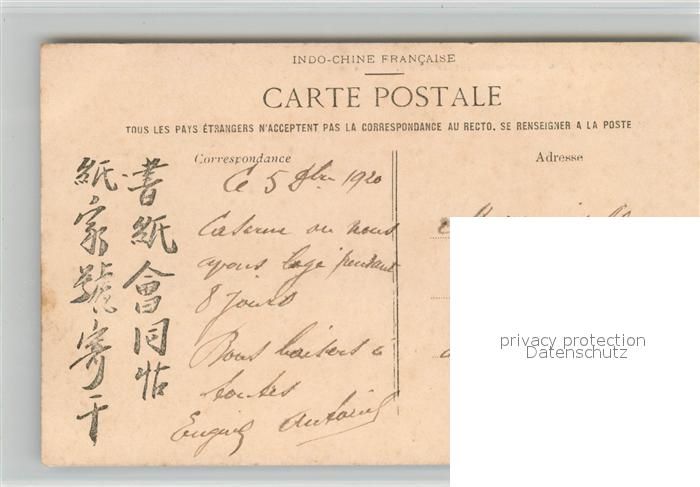 INDO-CHINE FRANÇAISE
CARTE POSTALE
TOUS LES PAYS ÉTRANGERS N'ACCEPTENT PAS LA CORRESPONDANCE AU RECTO. SE RENSEIGNER A LA POSTE
Correspondance
Adresse
Ce 5 1920
Caserne ou nous
avons logé pendant
8 jours
Bons baisers à
toutes
書紙會同帖
紙家號寄千
privacy protection
Datenschutz